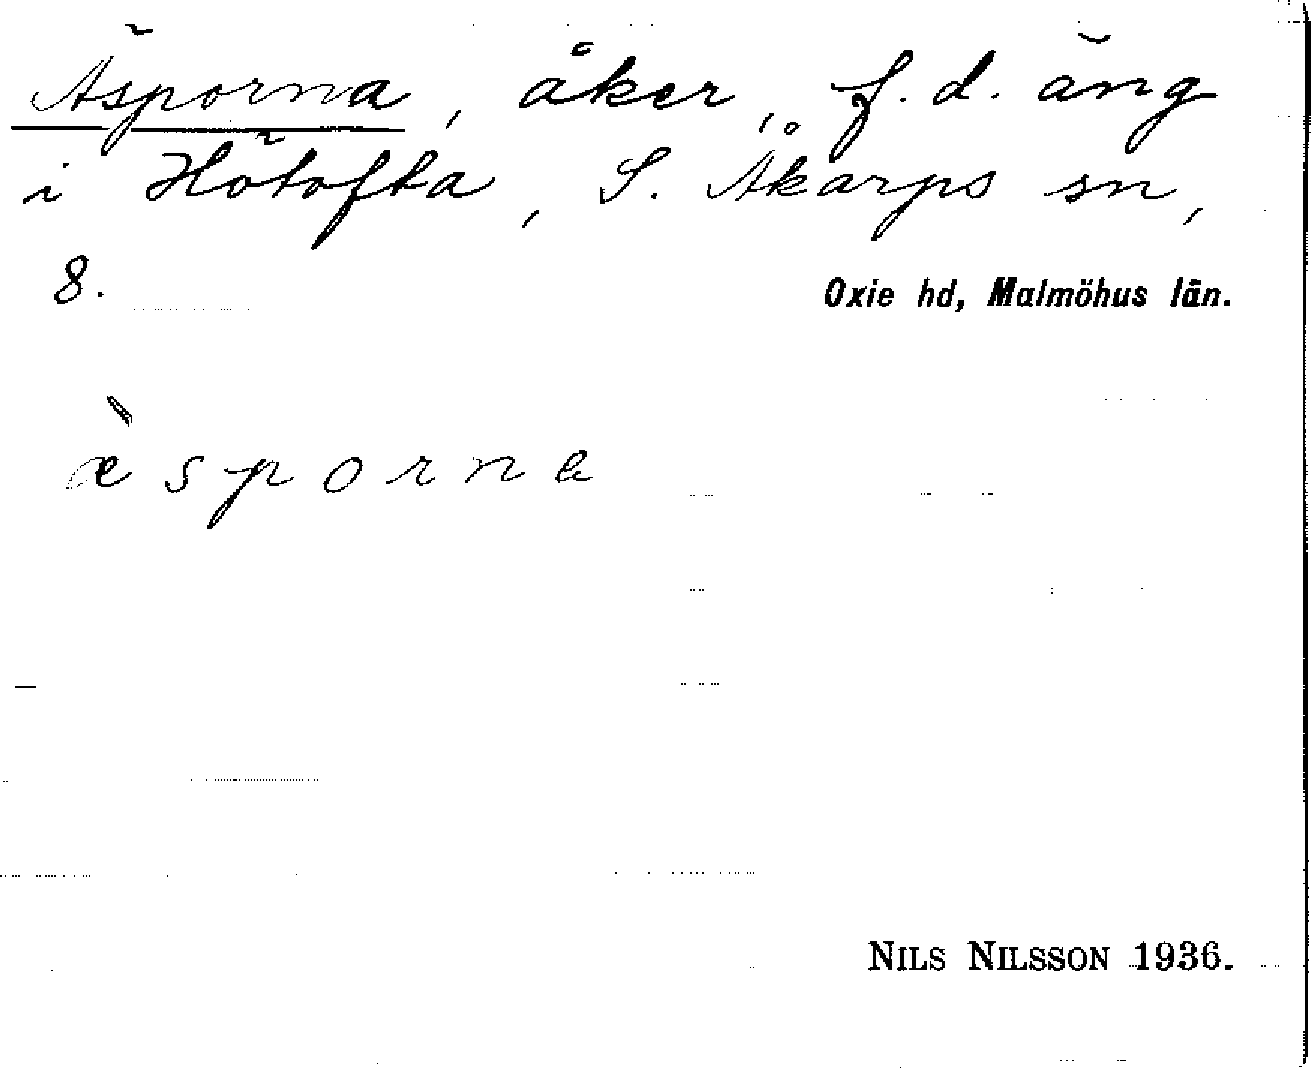 Äsporna, åker, f.d. äng
i Hötofta, S. Åkarps sn,
8.
Oxie hd, Malmöhus län.
æ̀sporna
NILS NILSSON 1936.